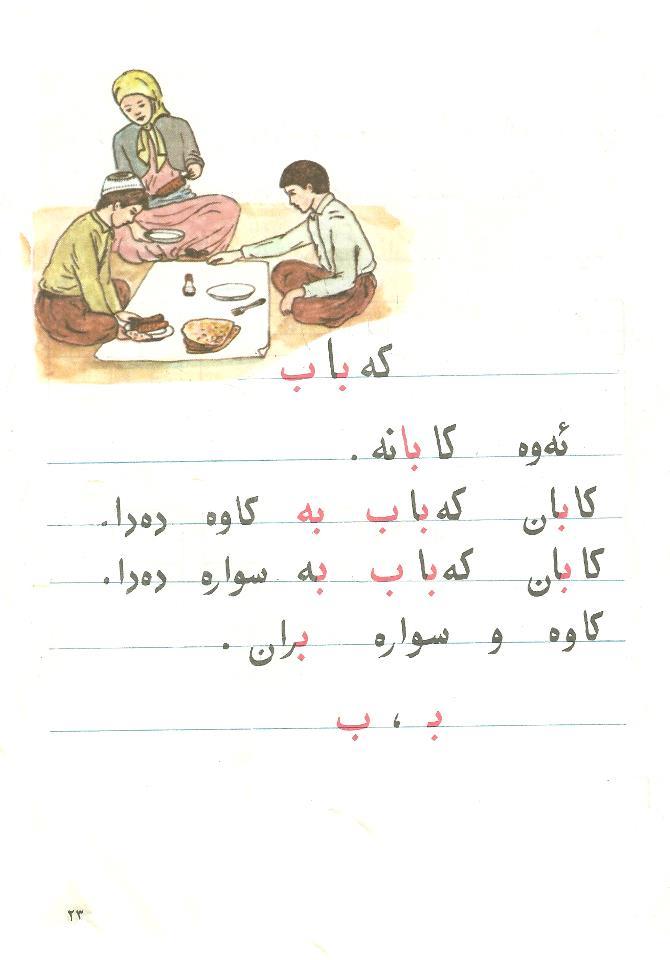 کەباب
ئەوە کابانە .
کابان کەباب بە کاوە دەدا.
کابان کەباب بە سوارە دەدا.
کاوە و سوارە بران .
بـ ، ب
٢٣